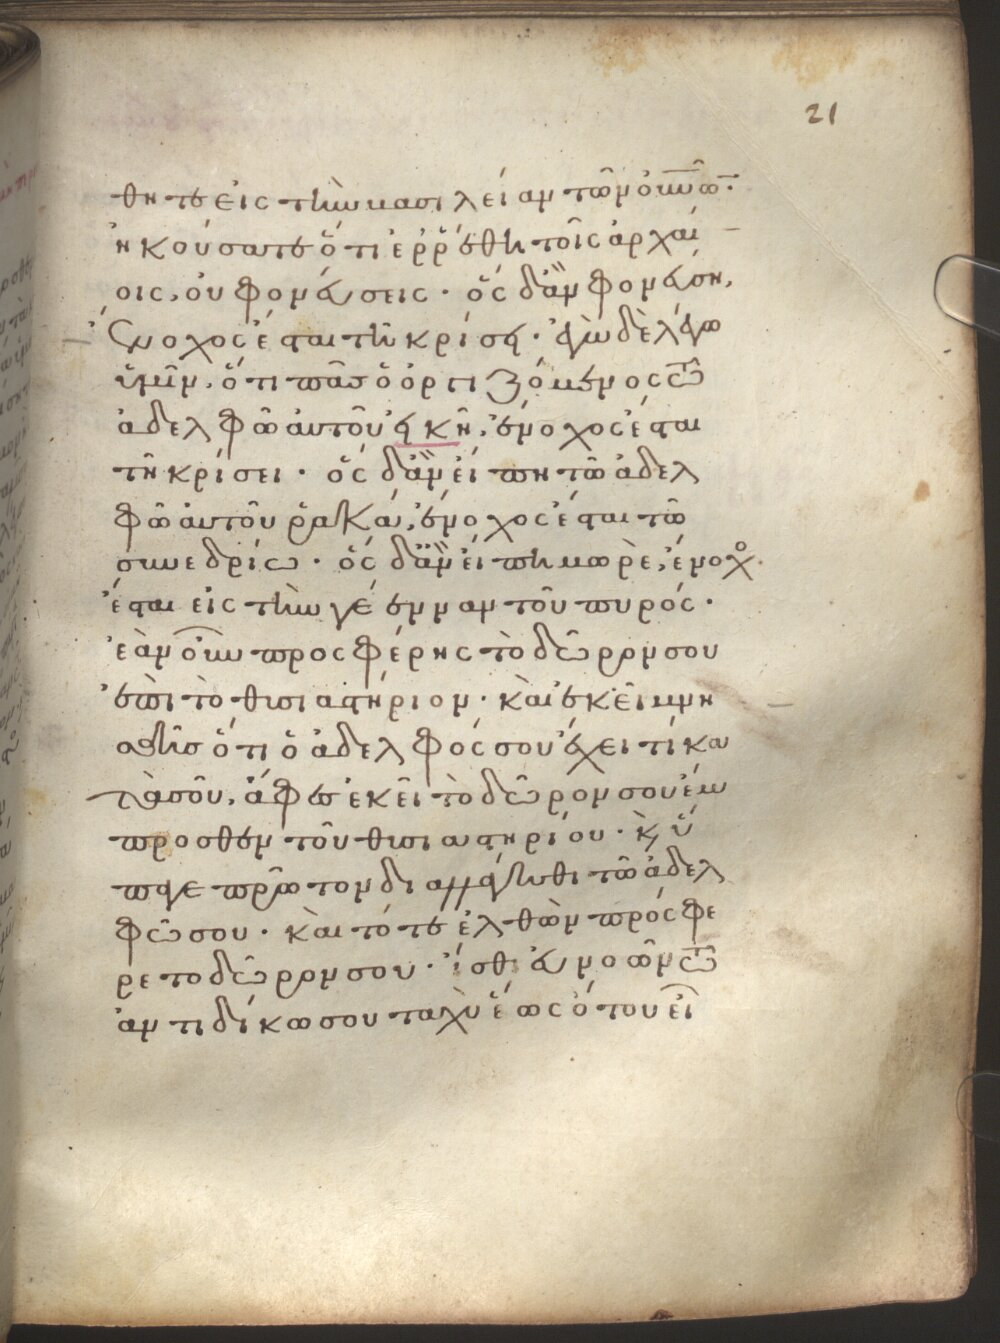 21
θητε εἰς τὴν βασιλείαν τῶν οὐνῶν·
ἠκούσατε ὅτι ἐρρέθη τοῖς ἀρχαί
οις, οὐ φονεύσεις· ὃς δἂν φονεύση,
ἔνοχος ἔσται τῆ κρίσει· ἐγὼ δὲ λέγω
ὑμῖν, ὅτι πᾶσ ὁ ὀργιζόμενος τῶ
ἀδελφῶ αὐτοῦ εἰκῆ, ἔνοχος ἔσται
τῆ κρίσει· ὃς δἂν εἴπη τῶ ἀδελ
φῶ αὐτοῦ ῥακά, ἔνοχος ἔσται τῶ
συνεδρίω· ὃς δἂν εἴπη μωρὲ, ἔνοχο
ἔσται εἰς τὴν γέενναν τοῦ πυρός·
ἐὰν οὖν προσφέρης τὸ δῶρον σου
ἐπὶ τὸ θυσιαστήριον· καὶ ἐκεῖ μνη
σθῆσ ὅτι ὁ ἀδελφός σου ἔχει τί κα
τὰ σοῦ, ἄφες ἐκεῖ τὸ δῶρον σου ἔμ
προσθεν τοῦ θυσιαστηρίου· κ ὕ
παγε πρῶτον διαλλάγηθι τῶ ἀδελ
φῶ σου· καὶ τότε ἐλθὼν πρόσφε
ρε το δῶρον σου· ἴσθι εὐνοῶν τῶ
ἀντιδίκω σου ταχὺ ἕως ὅτου εἶ